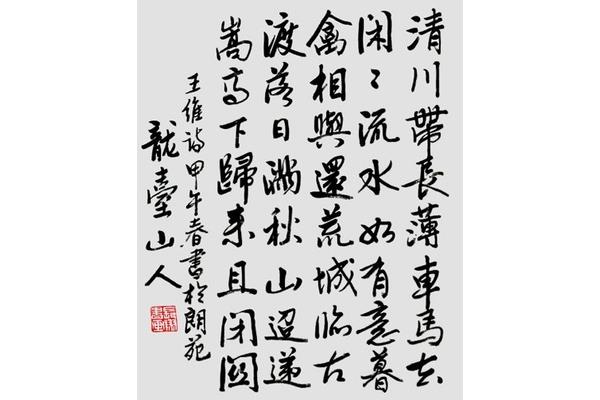 清川帶長薄車馬去
閑〻流水如有意暮
禽相與還荒城臨古
渡落日滿秋山迢遞
嵩高下歸来且閉關
王維詩甲午春書於朗苑
龍臺山人